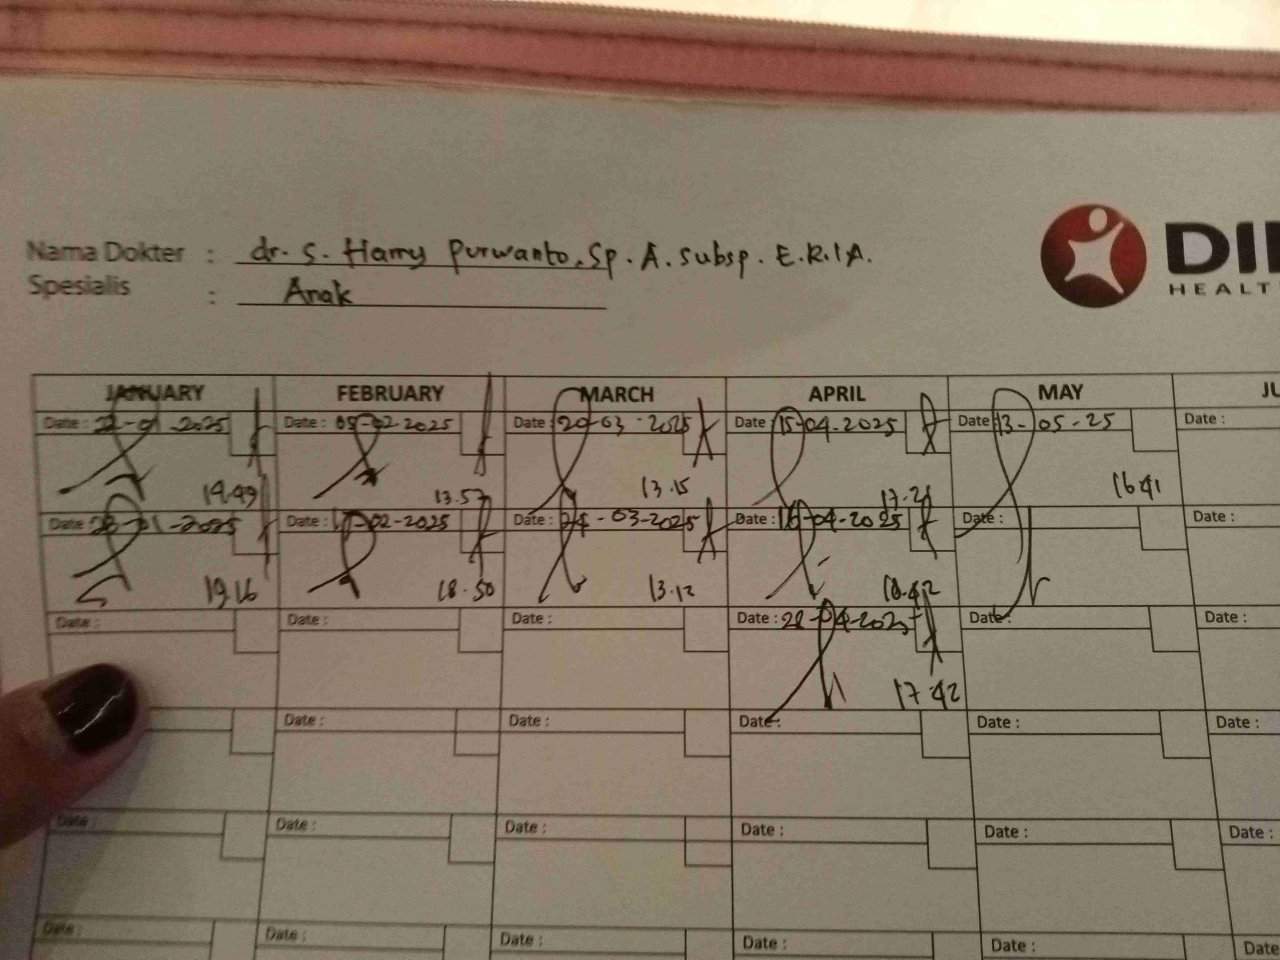 Nama Dokter : dr. S. Harry Purwanto, Sp. A. Subsp. E.R.I A.
Spesialis : Anak
DI
HEALT
JANUARY FEBRUARY MARCH APRIL MAY JU
Date : 22-01-2025 Date : 05-02-2025 Date : 20-03-2025 Date : 15-04-2025 Date : 13-05-25 Date :
19.49 13.57 13.15 17.21 16 41
Date : 28-01-2025 Date : -02-2025 Date : 24-03-2025 Date : 16-04-2025 Date : Date :
19.16 18.50 13.12 18.42
Date : Date : Date : Date : 28-04-2025 Date : Date :
17.42
Date : Date : Date : Date :
Date : Date : Date : Date : Date : Date :
Date : Date : Date : Date : Date : Date